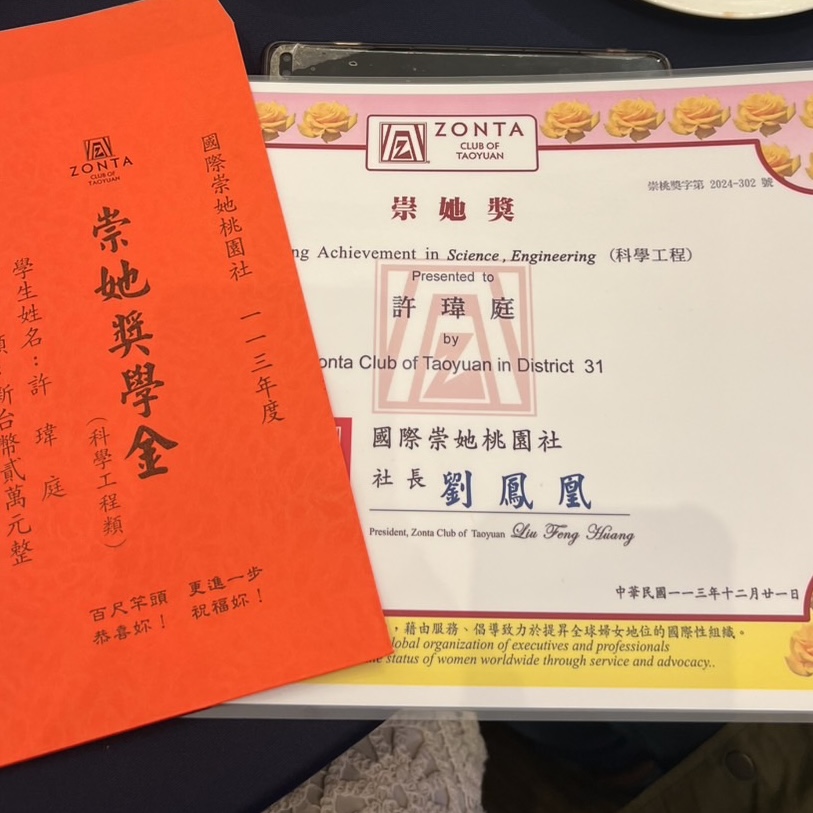 國際崇她桃園社 一一三年度
ZONTA
CLUB OF
TAOYUAN
崇她獎學金
(科學工程類)
學生姓名:許瑋庭
新台幣貳萬元整
百尺竿頭 更進一步
恭喜妳! 祝福妳!
ZONTA
CLUB OF
TAOYUAN
崇桃獎字第 2024-302 號
崇她獎
Achievement in Science, Engineering (科學工程)
Presented to
許瑋庭
by
Zonta Club of Taoyuan in District 31
國際崇她桃園社
社長 劉鳳凰
President, Zonta Club of Taoyuan Liu Feng Huang
中華民國一一三年十二月廿一日
,藉由服務、倡導致力於提昇全球婦女地位的國際性組織。
global organization of executives and professionals
status of women worldwide through service and advocacy..